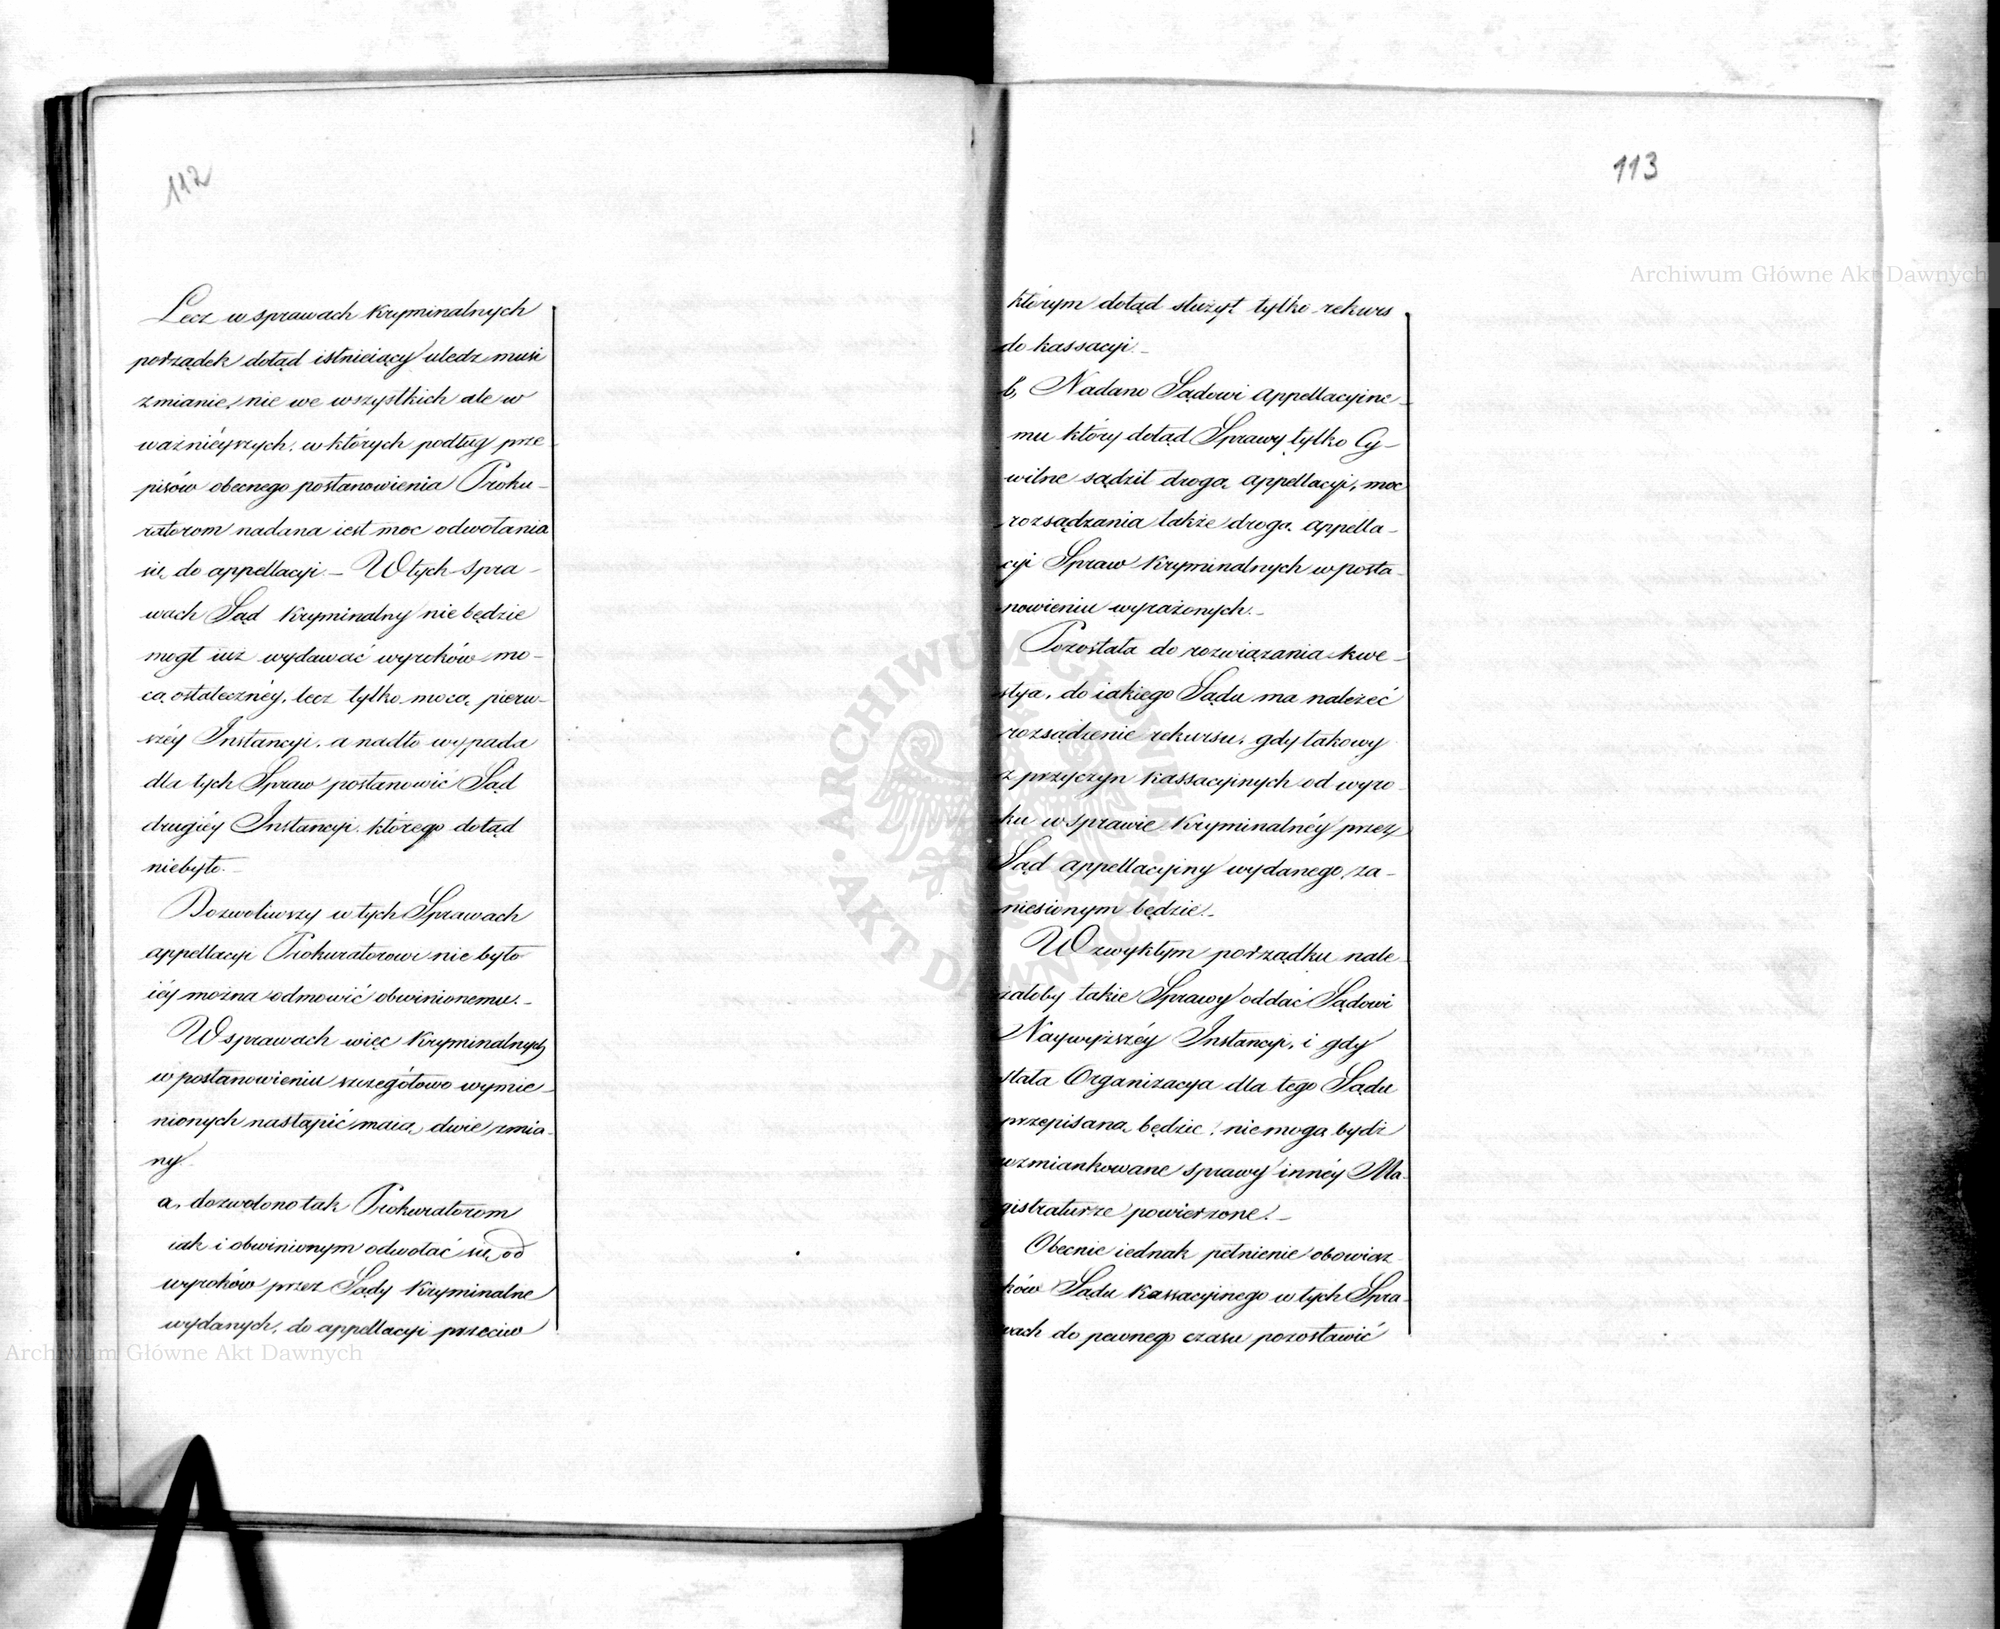 112
Lecz w sprawach Kryminalnych
porządek dotąd istnieiący uledz musi
zmianie, nie we wszystkich ale w
ważnieyszych, w których podług prze-
pisów obecnego postanowienia Proku-
ratorom nadana iest moc odwołania
się do appellacyi. – W tych spra-
wach Sąd Kryminalny nie będzie
mogł iuż wydawać wyroków mo-
cą ostateczney, lecz tylko mocą pierw-
széy Instancyi, a nadto wypada
dla tych Spraw postanowić Sąd
drugiéy Instancyi, którego dotąd
niebyło. –
Dozwoliwszy w tych Sprawach
appellacyi Prokuratorowi nie było
iéy można odmowić obwinionemu. –
W sprawach więc Kryminalnych
w postanowieniu szczegółowo wymie-
nionych nastąpić maią dwie zmia-
ny.
a, dozwolono tak Prokuratorom
iak i obwinionym odwołać się od
wyroków przez Sądy Kryminalne
wydanych, do appellacyi przeciw
113
którym dotąd służył tylko rekurs
do kassacyi. –
b, Nadano Sądowi Appellacyine-
mu który dotąd Sprawy tylko Cy-
wilne sądził drogą appellacyi, moc
rozsądzania także drogą appella-
cyi Spraw Kryminalnych w posta-
nowieniu wyrażonych. –
Pozostała do rozwiązania kwe-
stya, do iakiego Sądu ma należeć
rozsądzenie rekursu, gdy takowy
z przyczyn Kassacyinych od wyro-
ku w sprawie Kryminalnéy przez
Sąd appellacyiny wydanego, za-
niesionym będzie. –
W zwykłym porządku nale-
żałoby takie Sprawy oddać Sądowi
Naywyższéy Instancyi, i gdy
stała Organizacya dla tego Sądu
przepisaną będzie, nie mogą bydź
wzmiankowane sprawy innéy Ma-
gistraturze powierzone. –
Obecnie iednak pełnienie obowiąz-
ków Sądu Kassacyinego w tych Spra-
wach do pewnego czasu pozostawić
Archiwum Główne Akt Dawnych
Archiwum Główne Akt Dawnych
ARCHIWUM GŁÓWNE AKT DAWNYCH